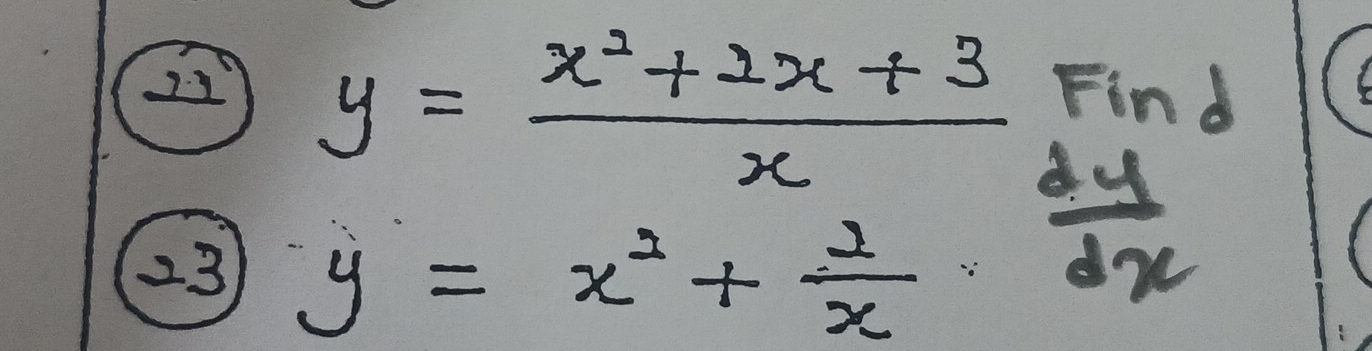 22 y = (x² + 2x + 3)/x Find
dy/dx
23 y = x² + 2/x